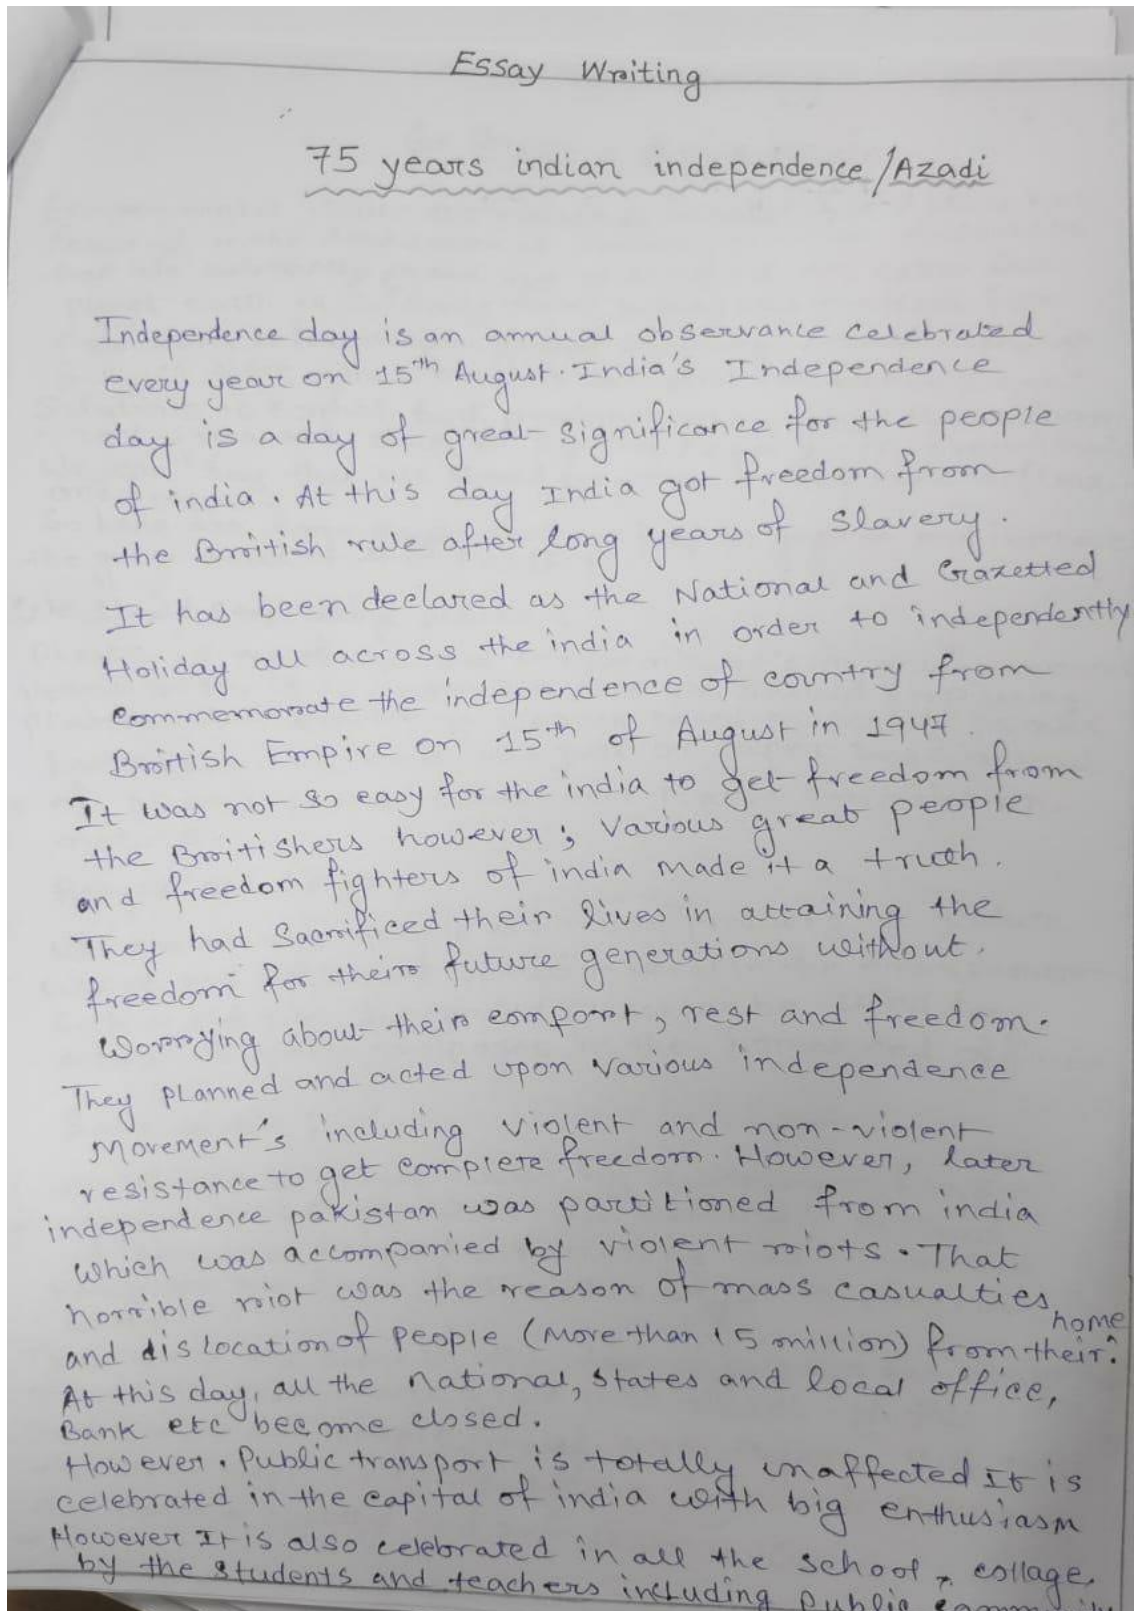 Essay Writing
75 years indian independence / Azadi
Independence day is an annual observance celebrated
every year on 15th August. India's Independence
day is a day of great significance for the people
of india. At this day India got freedom from
the British rule after long years of slavery.
It has been declared as the National and Gazetted
Holiday all across the india in order to independently
commemorate the independence of country from
British Empire on 15th of August in 1947.
It was not so easy for the india to get freedom from
the Britishers however; Various great people
and freedom fighters of india made it a truth.
They had Sacrificed their lives in attaining the
freedom for their future generations without.
Worrying about their comport, rest and freedom.
They planned and acted upon various independence
Movement's including violent and non-violent
resistance to get complete freedom. However, later
independence pakistan was partitioned from india
which was accompanied by violent riots. That
horrible riot was the reason of mass casualties
and dislocation of people (More than 15 million) from their home.
At this day, all the national, states and local office,
Bank etc become closed.
However. Public transport is totally unaffected It is
celebrated in the capital of india with big enthusiasm
However It is also celebrated in all the school, collage
by the students and teachers including public